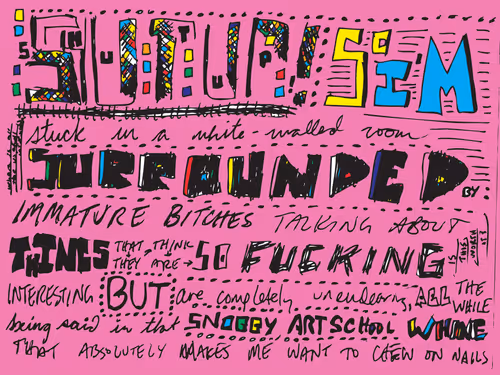 SO I'M
stuck in a white-walled room
SURROUNDED BY
IMMATURE BITCHES TALKING ABOUT
THINGS THAT THEY THINK ARE SO FUCKING
INTERESTING BUT are completely unendearing, ALL THE WHILE
being said in that SNOBBY ART SCHOOL WHINE
THAT ABSOLUTELY MAKES ME WANT TO CHEW ON NAILS